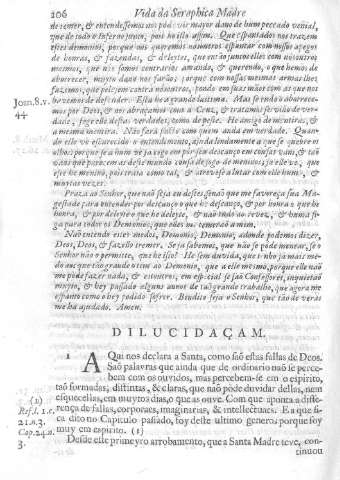 206 Vida da Seraphica Madre
de temer, & entendessemos nos pòde vir mayor dano de hum peccado venial,
que de todo o Inferno junto, pois he isso assim. Que espantados nos trazem
estes demonios, porque nòs queremos nòs outros espantar com nossos apegos
de honras, & fazendas, & deleytes, que entaõ juntos elles com nosoutros
mesmos, que nos somos contrarios amando, & querendo, o que hemos de
aborrecer, muyto dano nos faràõ: porque com nossas mesmas armas lhes
fazemos, que pelejem contra nòsoutros, pondo em suas mãos com as que nos
Joan.8.v. havemos de defender. Esta he a grande lastima. Mas se tudo o aborrecemos
44 por Deos, & nos abraçamos com a Cruz, & tratamos servilo de verdade,
foge elle destas verdades, como de peste. He amigo de mentiras, &
a mesma mentira. Não fará pacto com quem anda em verdade. Quando
elle vè escurecido o entendimento, ajuda lindamente a que se quebrem os
olhos: porque se a hum vè já cego em pòr seu descanço em cousas vans, & taõ
vans que parecem as deste mundo cousa de jogo de meninos; já elle vè, que
este he menino, pois trata como tal, & atreve-se a lutar com elle huma, &
muytas vezes.
Praza ao Senhor, que naõ seja eu destes, senaõ que me favoreça sua Magestade
para entender por descanço o que he descanço, & por honra o que he
honra, & por deleyte o que he deleyte, & naõ tudo ao revez, & huma figa
para todos os Demonios, que elles me temeràõ a mim.
Naõ entendo estes medos, Demonio, Demonio, adonde podemos dizer,
Deos, Deos, & fazello tremer. Se já sabemos, que naõ se pòde menear, se o
Senhor não o permitte, que he isso? He sem duvida, que tenho já mais medo
aos que taõ grande o tem ao Demonio, que a elle mesmo, porque elle naõ
me pòde fazer nada; & estoutros, em especial se saõ Confessores, inquietaõ
muyto, & hey passado alguns annos de taõ grande trabalho, que agora me
espanto como o hey podido sofrer. Bendito seja o Senhor, que taõ de veras
me ha ajudado. Amen.
DILUCIDAÇAM.
1 AQui nos declara a Santa, como saõ estas fallas de Deos.
Saõ palavras que ainda que de ordinario naõ se percebem
com os ouvidos, mas percebem-se em o espirito,
taõ formadas, distintas, & claras, que naõ pòde duvidar dellas, nem
esquecellas, em muytos dias, o que as ouve. Com que aponta a differença
(1) de fallas, corporaes, imaginarias, & intellectuaes. E a que fica
Ref.l.1.c. dito no Capitulo passado, foy deste ultimo genero: porque foy
21.n.3. muy em espirito. (1)
Cap.24.n.
3. Desde este primeyro arrobamento, que a Santa Madre teve, continuou